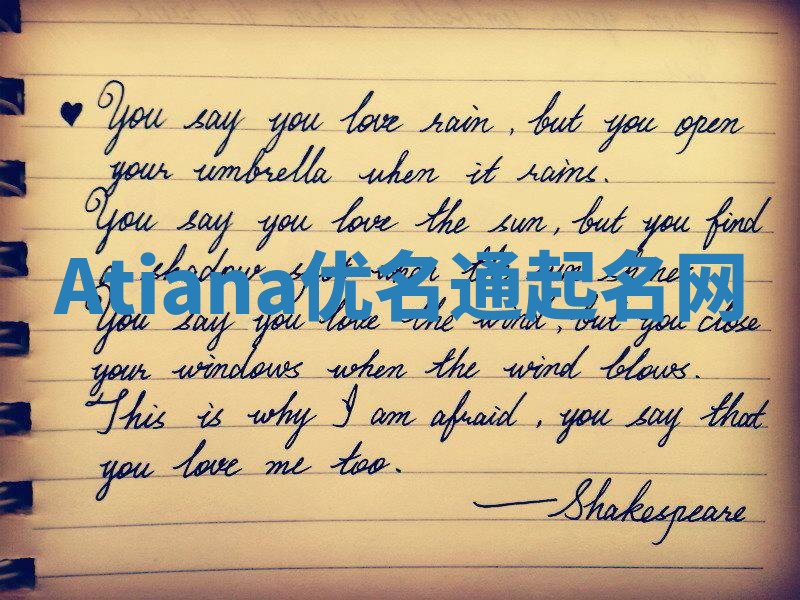 You say you love rain, but you open
your umbrella when it rains.
You say you love the sun, but you find
a shadow spot when the sun shines.
Atiana优名通起名网
You say you love the wind, but you close
your windows when the wind blows.
This is why I am afraid, you say that
you love me too.
— Shakespeare